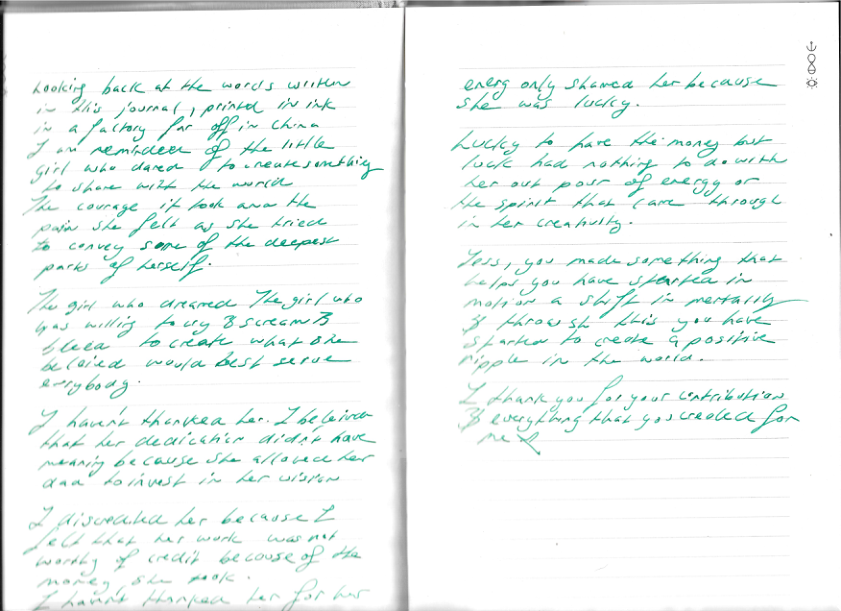 Looking back at the words written
in this journal, printed in ink
in a factory far off in China
I am reminded of the little
girl who dared to create something
to share with the world
The courage it took and the
pain she felt as she tried
to convey some of the deepest
parts of herself.
The girl who dreamed The girl who
was willing to cry & scream &
bleed to create what she
beleived would best serve
everybody.
I havent thanked her. I beleived
that her dedication didn't have
meaning because she allowed her
dad to invest in her vision
I discredited her because I
felt that her work was not
worthy of credit because of the
money she took.
I havent thanked her for her
energ only shamed her because
she was lucky.
Lucky to have the money but
luck had nothing to do with
her out pour of energy or
the spirit that came through
in her creativity.
Tess, you made something that
helps you have started in
motion a shift in mentally
& through this you have
started to create a positive
ripple in the world.
I thank you for your contribution
& everything that you created for
me